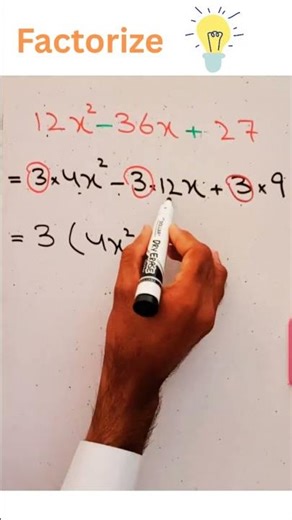 Factorize
12x² - 36x + 27
= 3 × 4x² - 3 · 12x + 3 × 9
= 3 ( 4x²
DRY ERASE